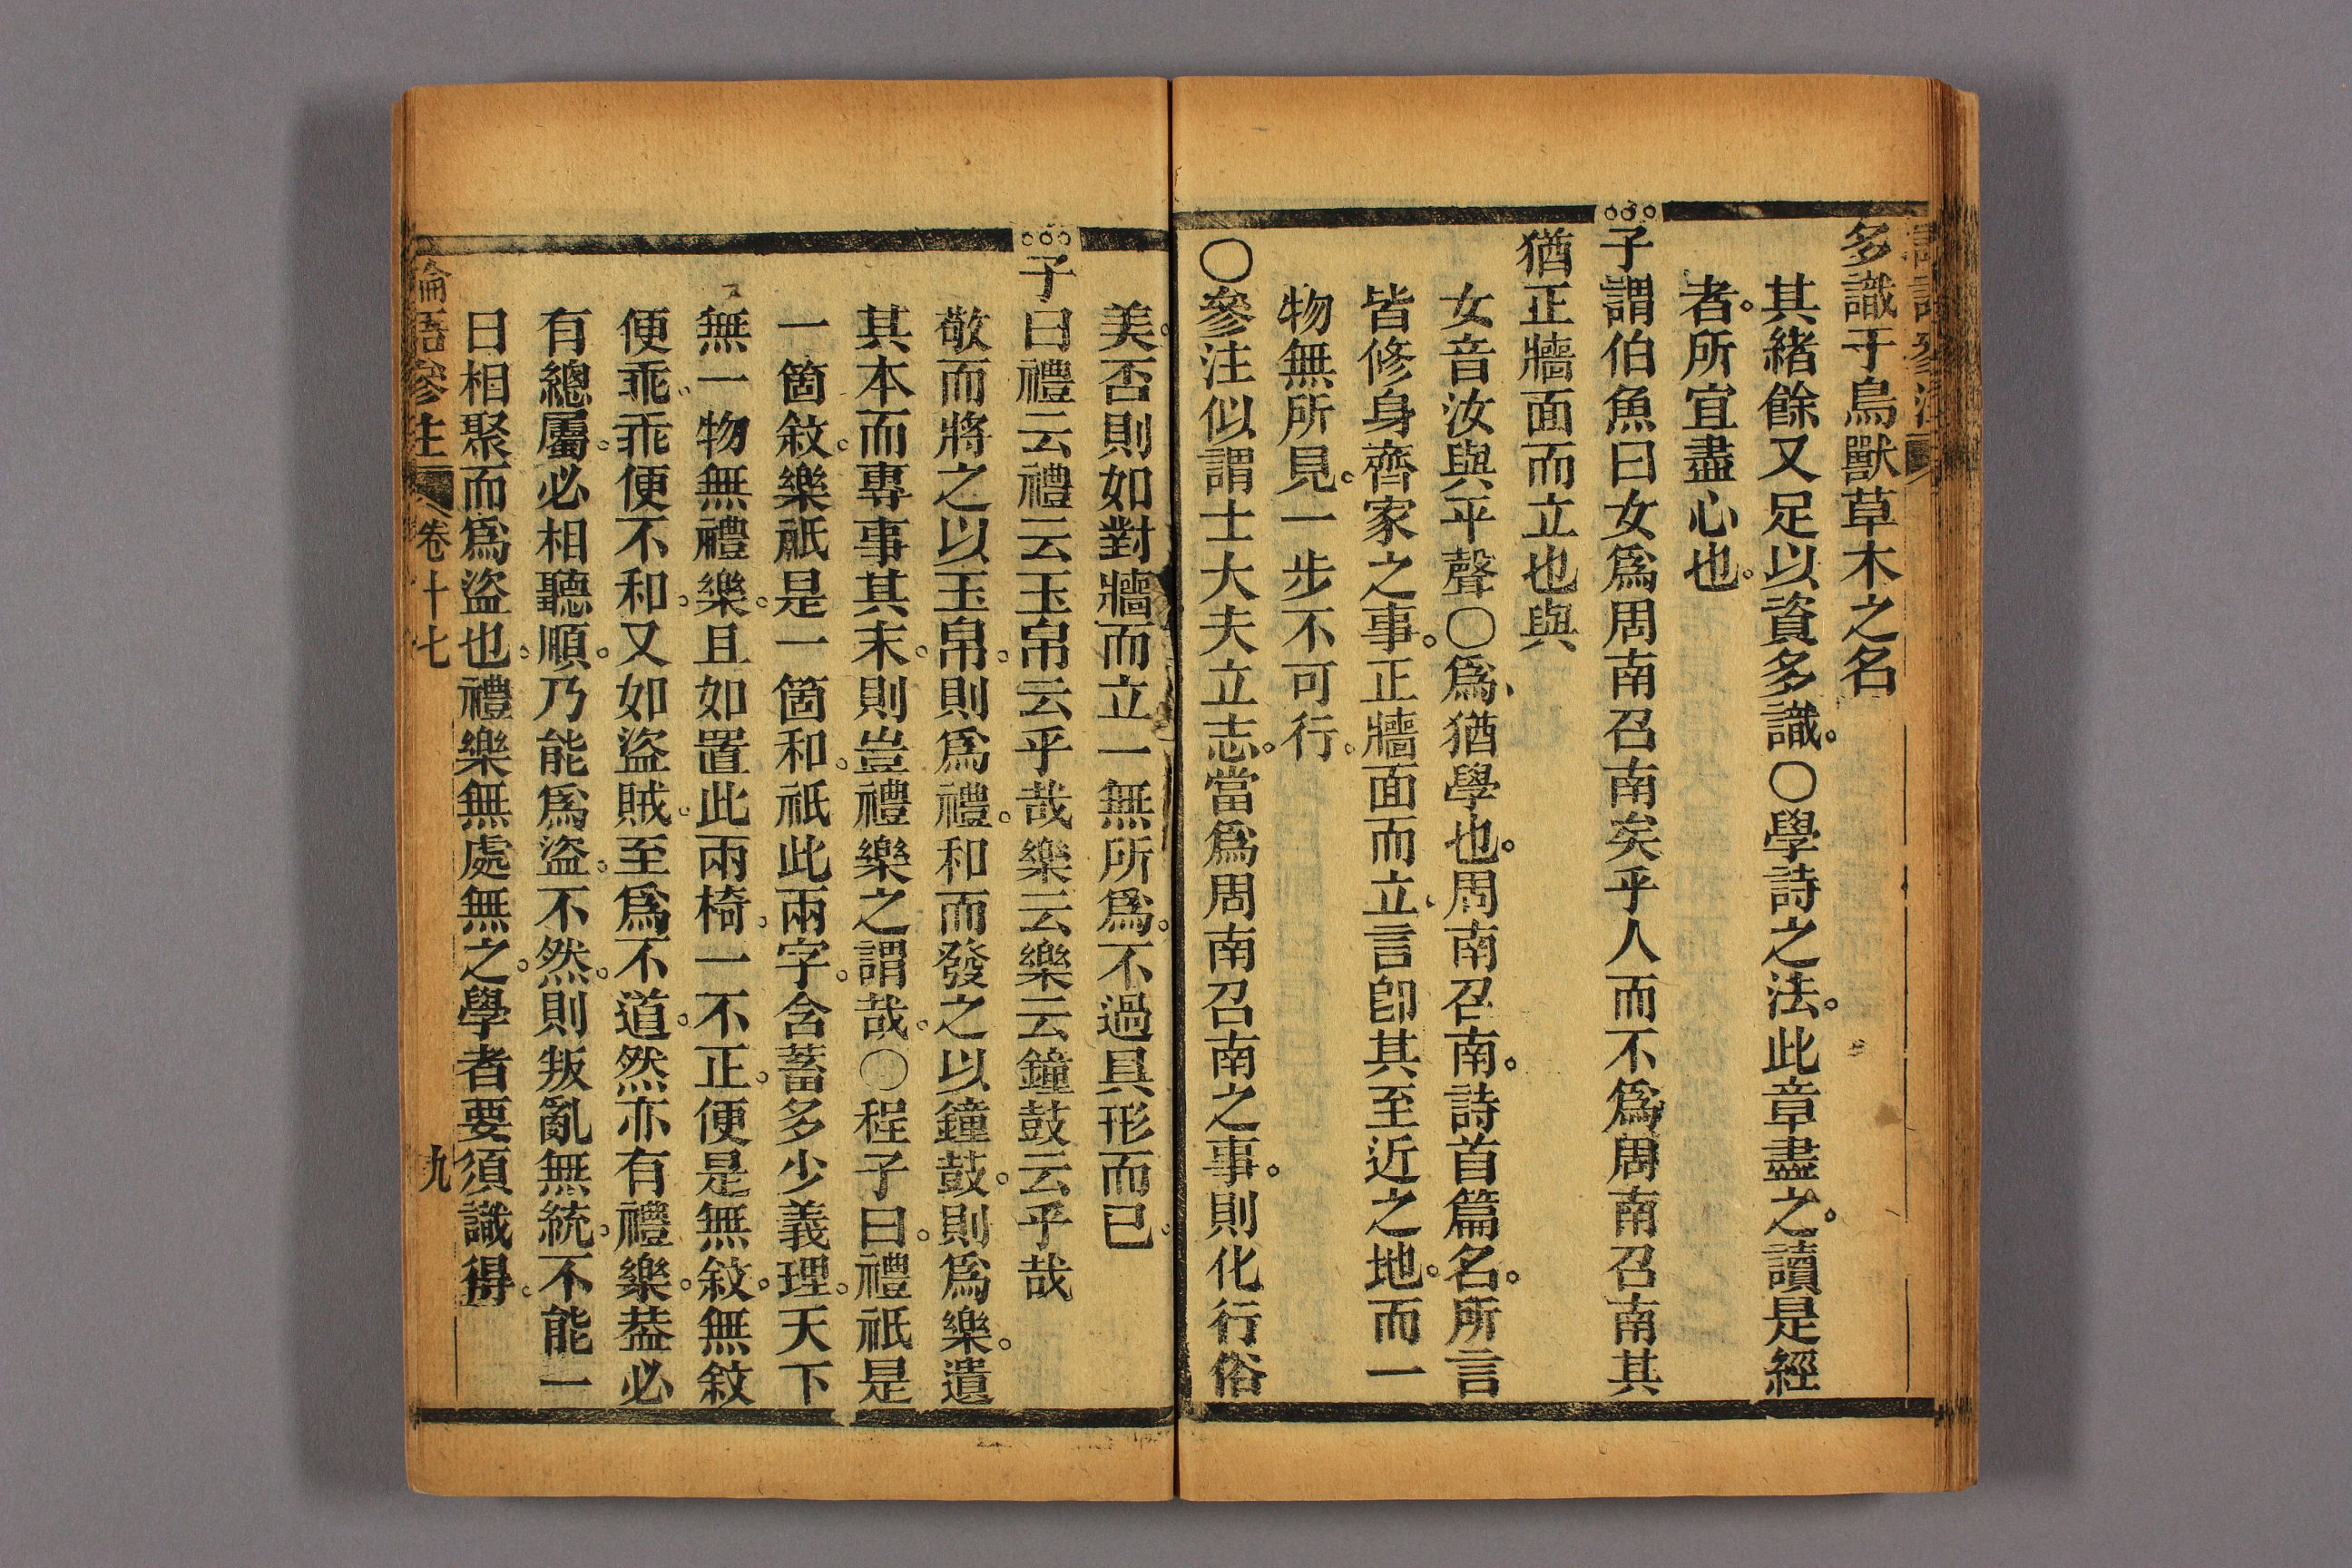 多識于鳥獸草木之名
其緒餘又足以資多識。○學詩之法。此章盡之。讀是經
者。所宜盡心也。
子謂伯魚曰女爲周南召南矣乎人而不爲周南召南其
猶正牆面而立也與
女音汝與平聲○爲、猶學也。周南召南。詩首篇名。所言
皆修身齊家之事。正牆面而立、言卽其至近之地。而一
物無所見。一步不可行。
○參注似謂士大夫立志。當爲周南召南之事。則化行俗
美。否則如對牆而立一無所爲。不過具形而已。
子曰禮云禮云玉帛云乎哉樂云樂云鐘鼓云乎哉
敬而將之以玉帛。則爲禮。和而發之以鐘鼓。則爲樂。遺
其本而專事其末。則豈禮樂之謂哉。○程子曰。禮祇是
一箇敘。樂祇是一箇和。祇此兩字。含蓄多少義理。天下
無一物無禮樂。且如置此兩椅。一不正。便是無敘。無敘
便乖。乖便不和。又如盜賊。至爲不道。然亦有禮樂。葢必
有總屬。必相聽順。乃能爲盜。不然。則叛亂無統。不能一
日相聚而爲盜也。禮樂無處無之。學者要須識得。
論語參注 卷十七 九